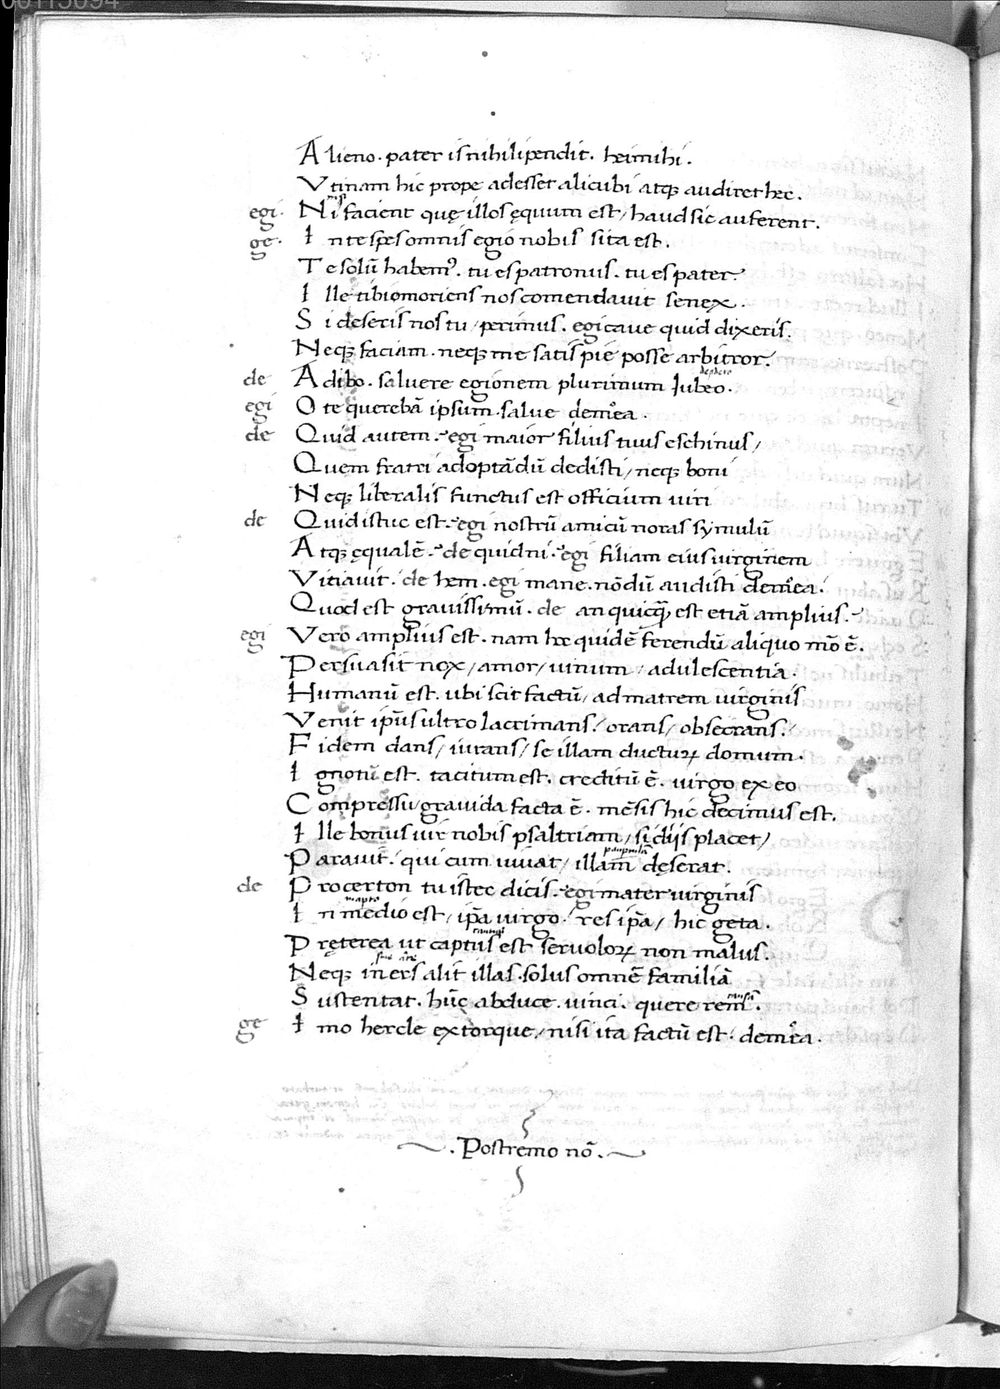 Alieno. pater is nihili pendit. hei mihi.
Vtinam hic prope adesset alicubi atqꝫ audiret hec.
egi. Ni facient quę illos ęquum est / haud sic auferent.
nisi
ge. In te spes omnis egio nobis sita est.
Te solũ habemꝰ. tu es patronus. tu es pater.
Ille tibi moriens nos comendavit senex.
Si deseris nos tu / perimus. egi cave quid dixeris.
Neqꝫ faciam. neqꝫ me satis pie posse arbitror.
de Adibo. salvere egionem plurimum Jubeo.
egi O te querebã ipsum. salve demea.
de Quid autem. egi maior filius tuus eschinus /
Quem fratri adoptãdũ dedisti / neqꝫ boni
Neqꝫ liberalis functus est officium viri
de Quid istuc est. egi nostrũ amicũ noras symulũ
Atqꝫ ęqualẽ. de quidni. egi filiam eius virginem
Vitiavit. de hem. egi mane. nõdũ audisti demea.
Quod est gravissimũ. de an quicq̃ est etiã amplius.
egi Vero amplius est. nam hec quidẽ ferendũ aliquo mõ ẽ.
Persuasit nox / amor / vinum / adulescentia.
Humanũ est. ubi scit factũ / ad matrem virginis
Venit ip̃us ultro lacrimans / orans / obsecrans /
Fidem dans / iurans / se illam ducturꝝ domum.
Ignotũ est. tacitum est. creditũ ẽ. virgo ex eo
Compressu gravida facta ẽ. mẽsis hic decimus est.
Ille bonus vir nobis psaltriam / si dijs placet /
Paravit. qui cum vivat / illam deserat.
de Procerton tu istec dicis. egi mater virginis
In medio est / ip̃a virgo. res ip̃a / hic geta.
Pręterea ut captus est servoloꝝ non malus.
Neqꝫ iners alit illas. solus omnẽ familiã
Sustentat. hũc abduce. vinci. quere rem.
ge Imo hercle extorque / nisi ita factũ est. demea.
. Postremo nõ.